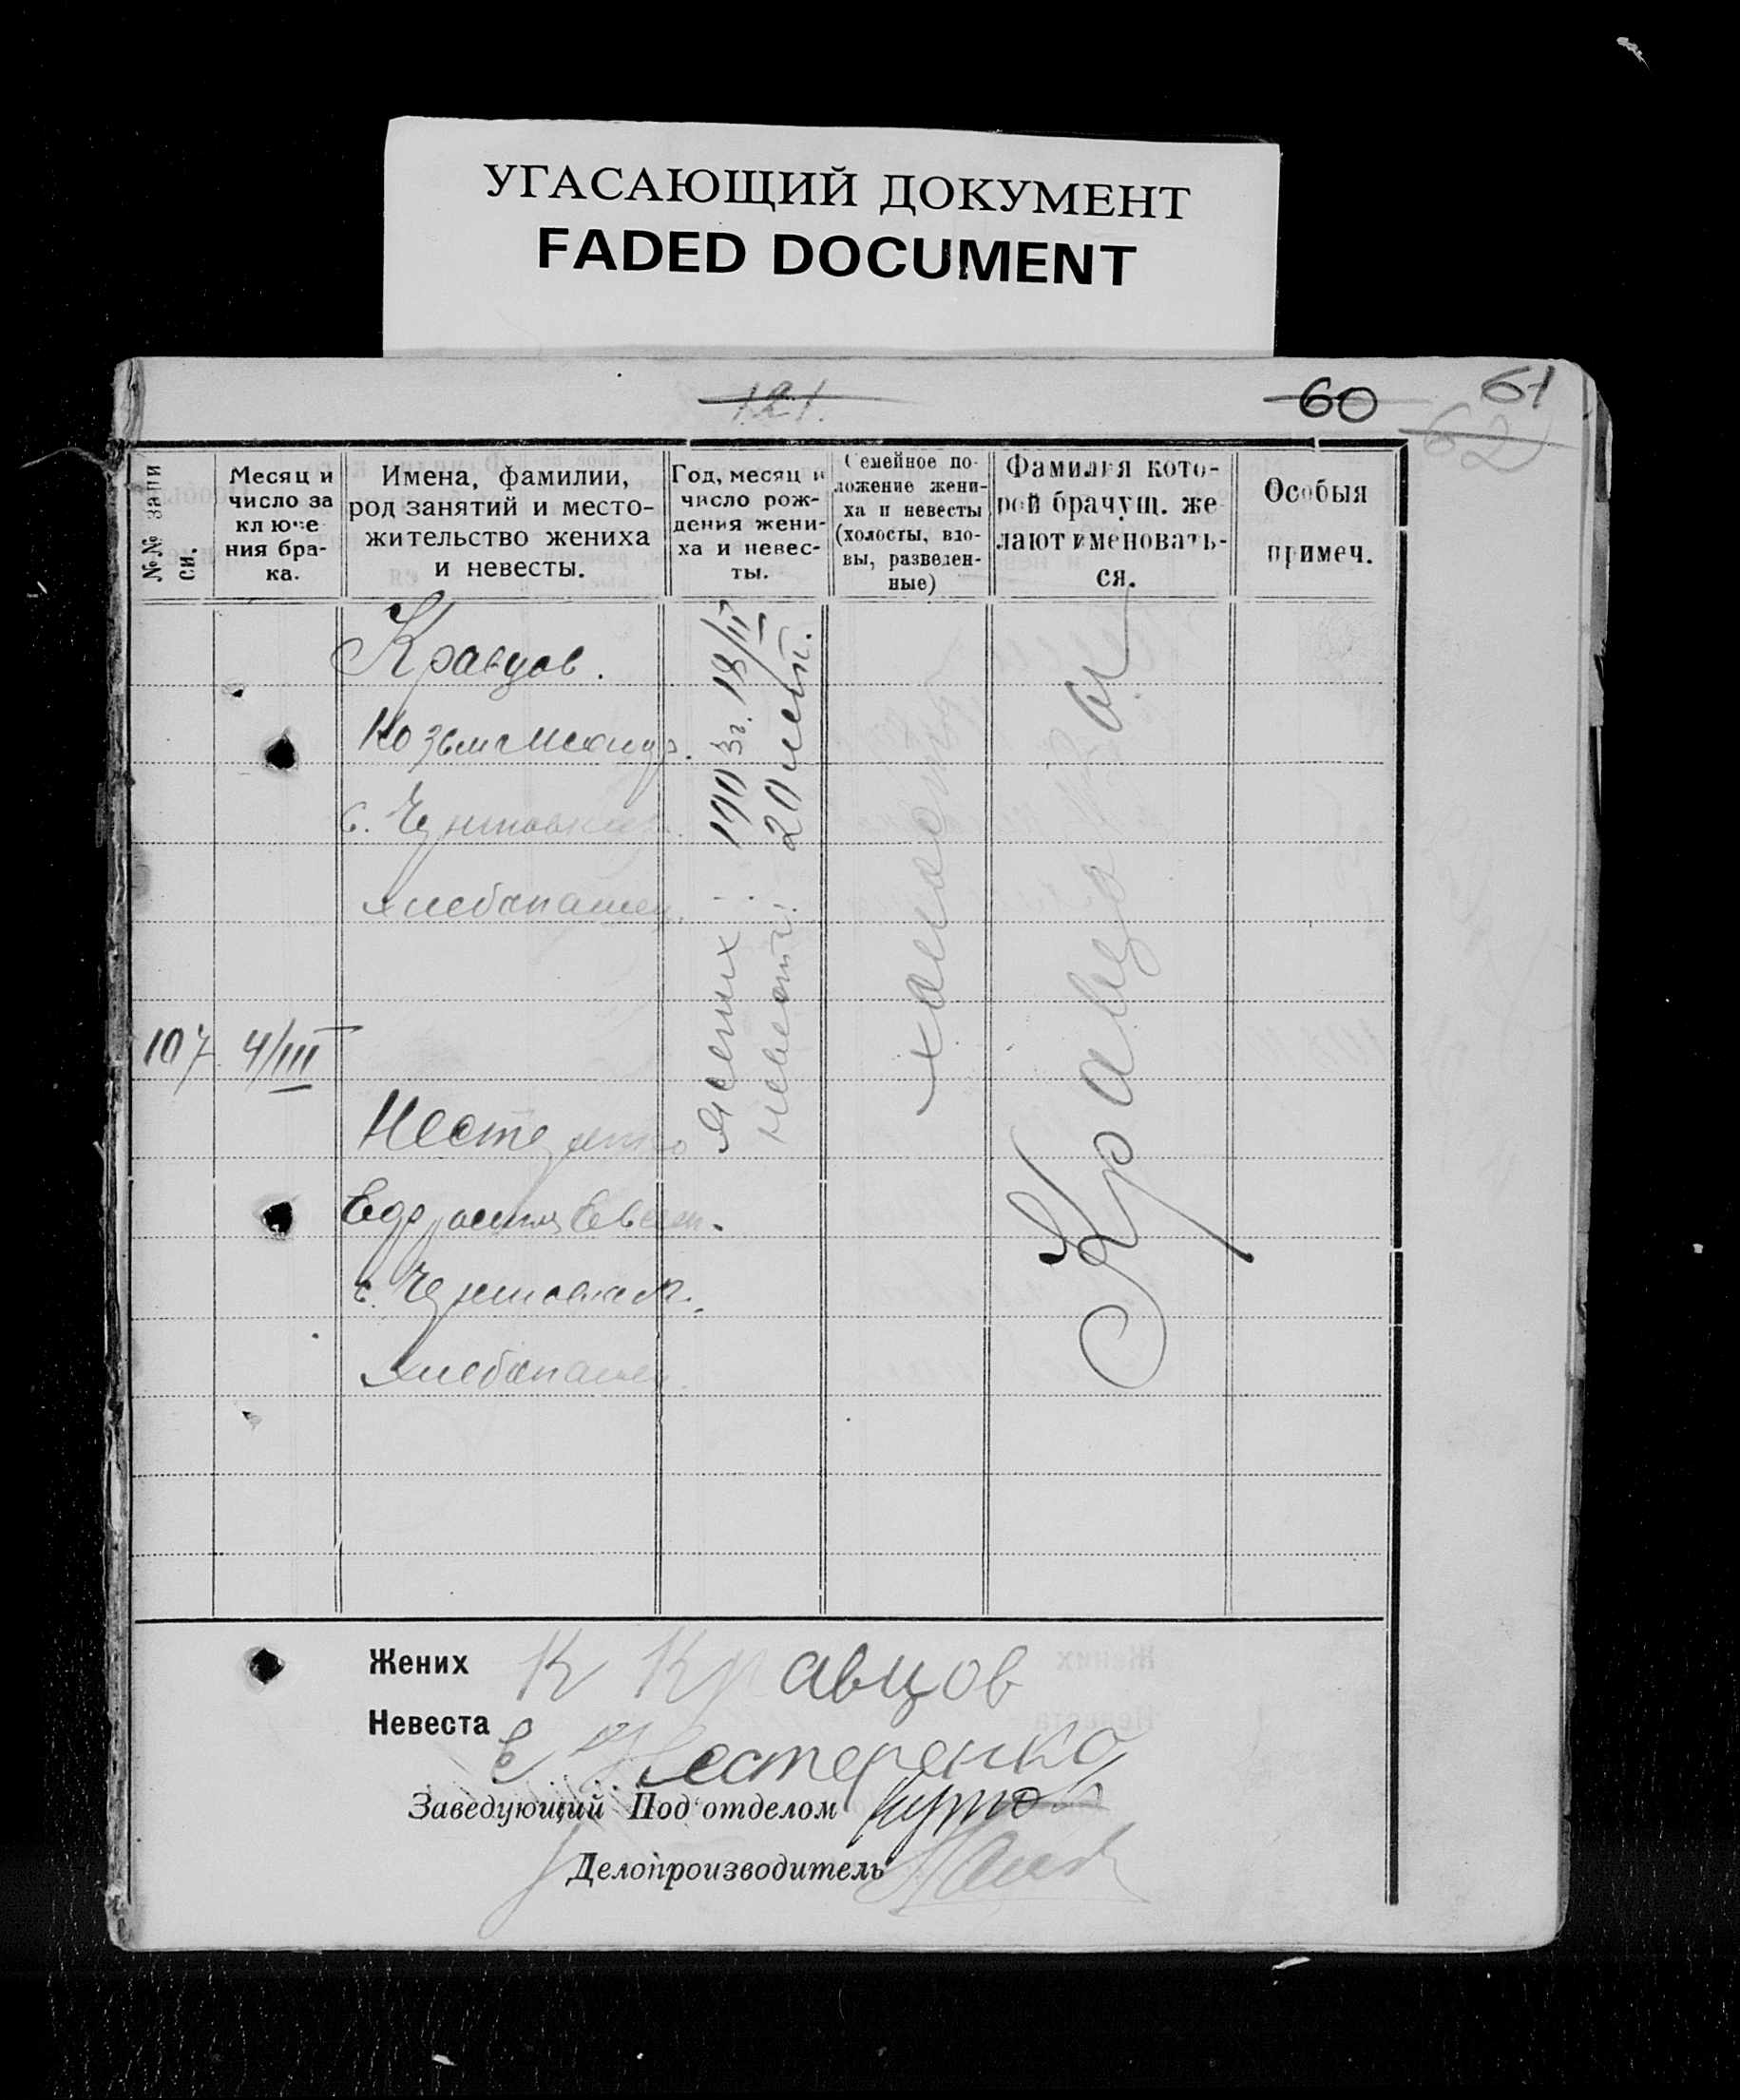 УГАСАЮЩИЙ ДОКУМЕНТ
FADED DOCUMENT
121.
60
61
62
№№ запи
си.
Месяц и
число за
ключе
ния бра-
ка.
Имена, фамилии,
род занятий и место-
жительство жениха
и невесты.
Год, месяц и
число рож-
дения жени-
ха и невес-
ты.
Семейное по-
ложение жени-
ха и невесты
(холосты, вдо-
вы, разведен-
ные)
Фамилия кото-
рой брачущ. же
лают именовать-
ся.
Особыя
примеч.
Кравцов.
Козьма
с.
хлебопашец.
107 4/III
Нестеренко
с.
хлебопашец.
жених 1903г. 18/II
невести 20 лет.
холост
Кравцовы
Жених К Кравцов
Невеста Е Нестеренко
Заведующий Под отделом
Делопроизводитель